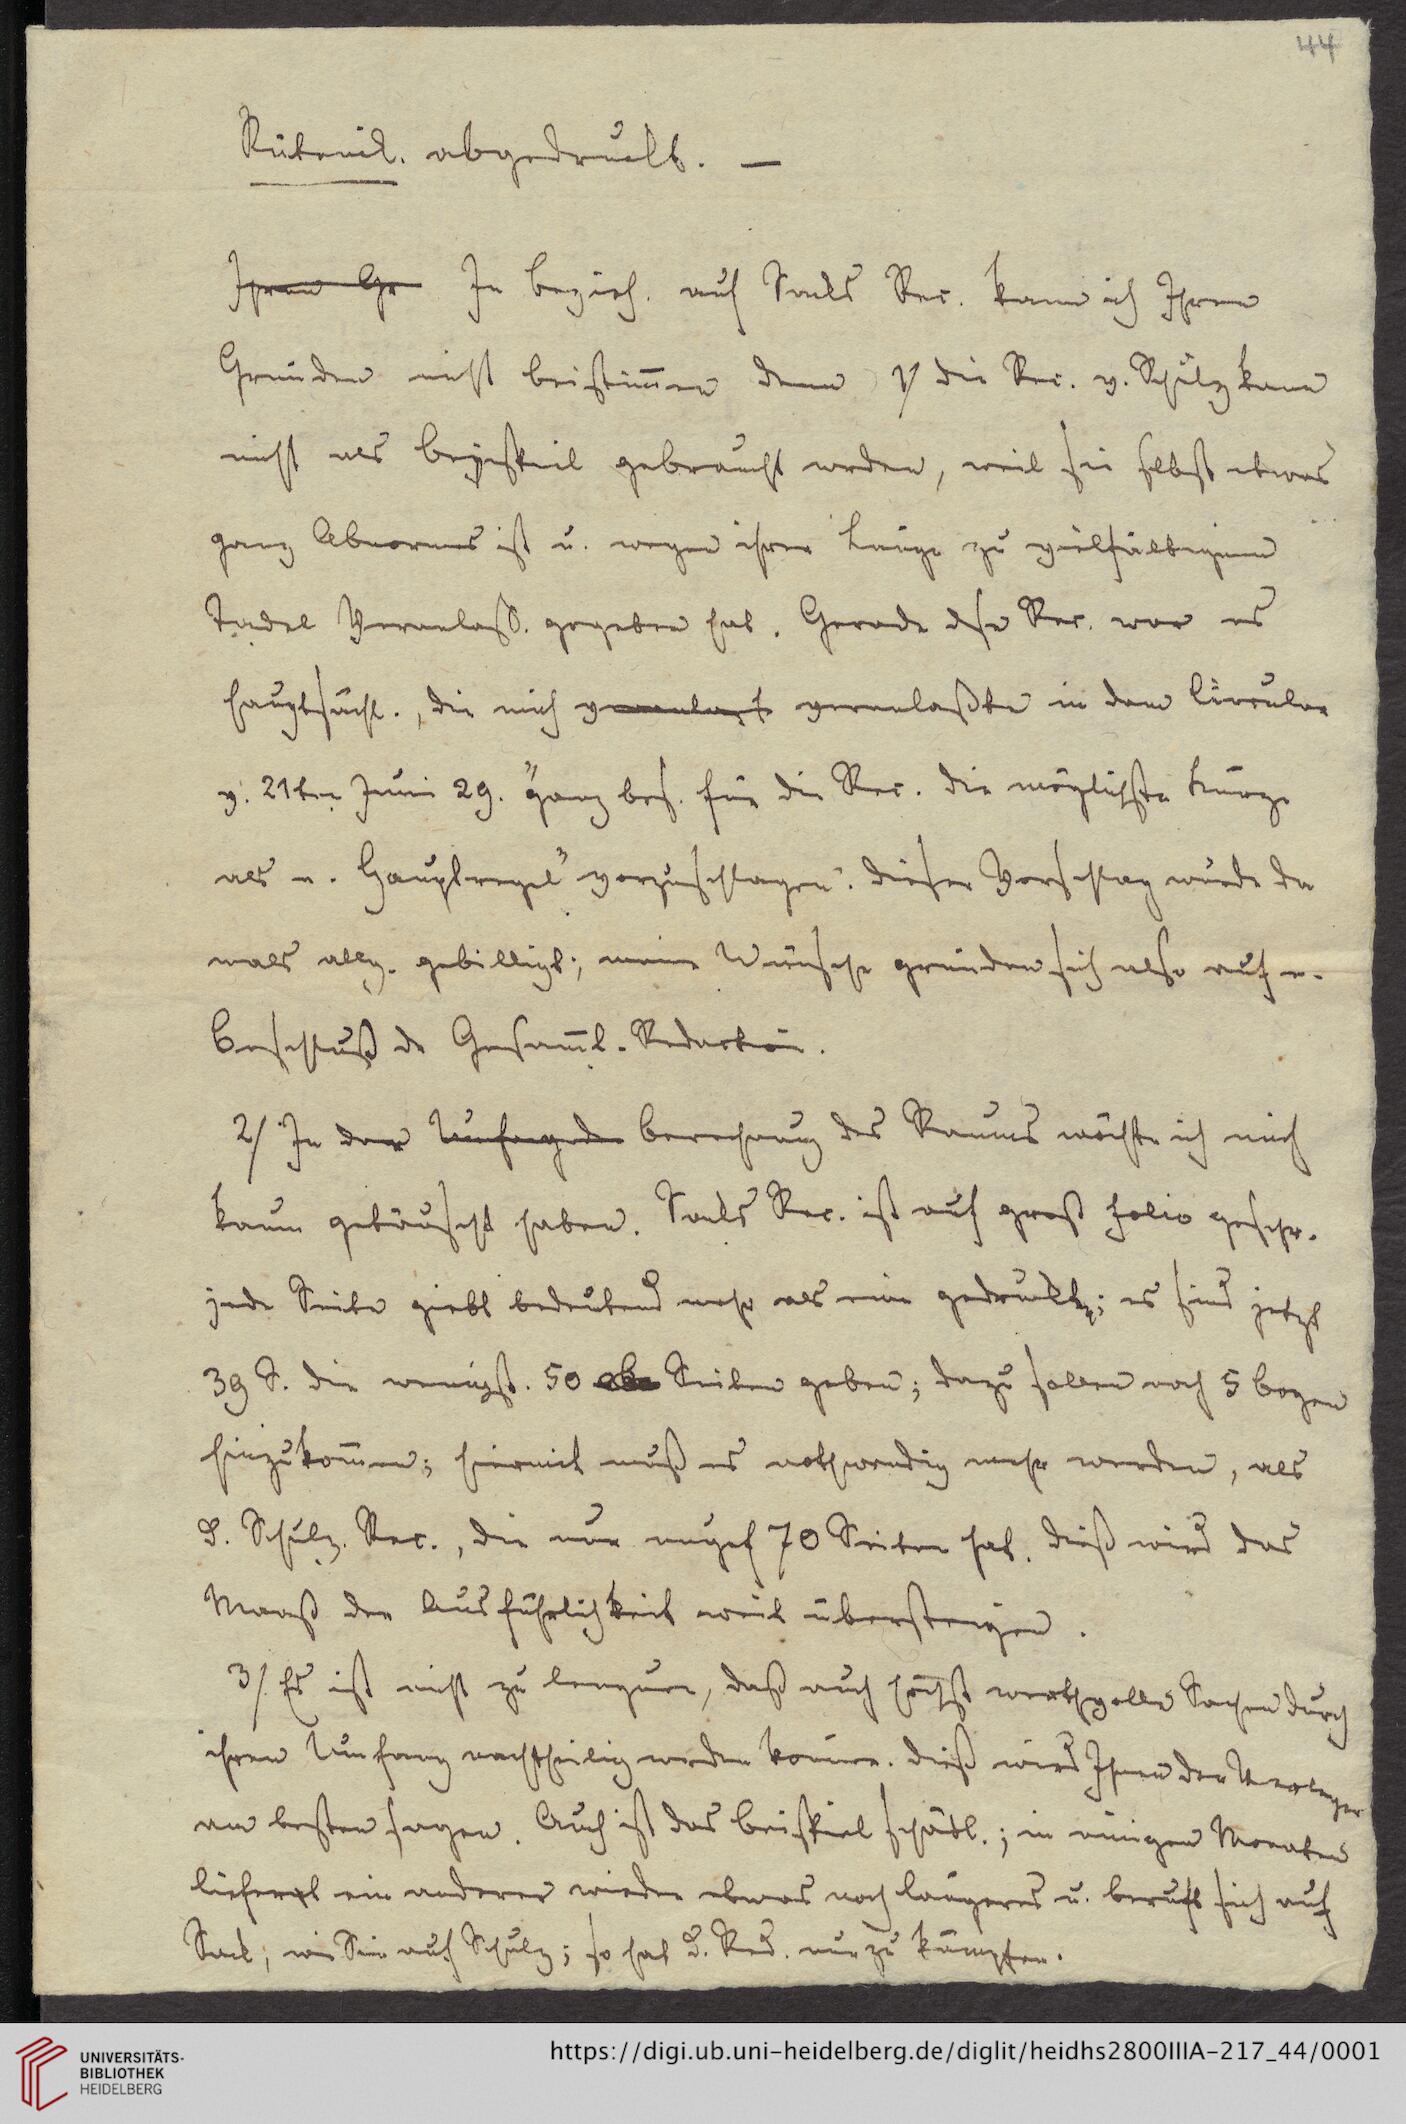 44
Rütenik. abgedruckt. —
Ihren Gr In Bezieh. auf Sacks Rec. kann ich Ihren
Gründen nicht beistim̄en denn 1/ die Rec. v. Schulz kann
nicht als Beyspiel gebraucht werden, weil sie selbst etwas
ganz Abnormes ist u. wegen ihrer Länge zu vielfältigem
Tadel Veranlass. gegeben hat. Gerade dse Rec. war es
hauptsächl., die mich veranlasst veranlaßte in dem Circular
v. 21ten Juni 29. "ganz bes. für die Rec. die möglichste Kürze
als e. Hauptregel" vorzuschlagen. Dieser Vorschlag wurde da
mals allg. gebilligt; meine Wünsche gründen sich also auf e.
Beschluß de Gesam̄t-Redaction.
2/ In der Umfangede Berechnung des Raums möchte ich mich
kaum getäuscht haben. Sacks Rec. ist auf groß Folio geschr.
jede Seite giebt bedeutend mehr als eine gedruckte; es sind jetzt
39 S. die wenigst. 50 Seiten geben; dazu sollen noch 5 Bogen
hinzukom̄en; hiermit muß es nothwendig mehr werden, als
d. Schulz. Rec., die nur ungef 70 Seiten hat. Dieß wird das
Maaß der Ausführlichkeit weit übersteigen.
3/. Es ist nicht zu leugnen, daß auch höchst werthvolle Sachen durch
ihren Umfang nachtheilig werden können. Dieß wird Ihnen der Verleger
am besten sagen. Auch ist das Beispiel schädl.; in einigen Monaten
liefert ein anderer wieder etwas noch längeres u. beruft sich auf
Sack, wie Sie auf Schulz; so hat d. Red. nur zu kämpfen.
UNIVERSITÄTS-
BIBLIOTHEK
HEIDELBERG
https://digi.ub.uni-heidelberg.de/diglit/heidhs2800IIIA-217_44/0001